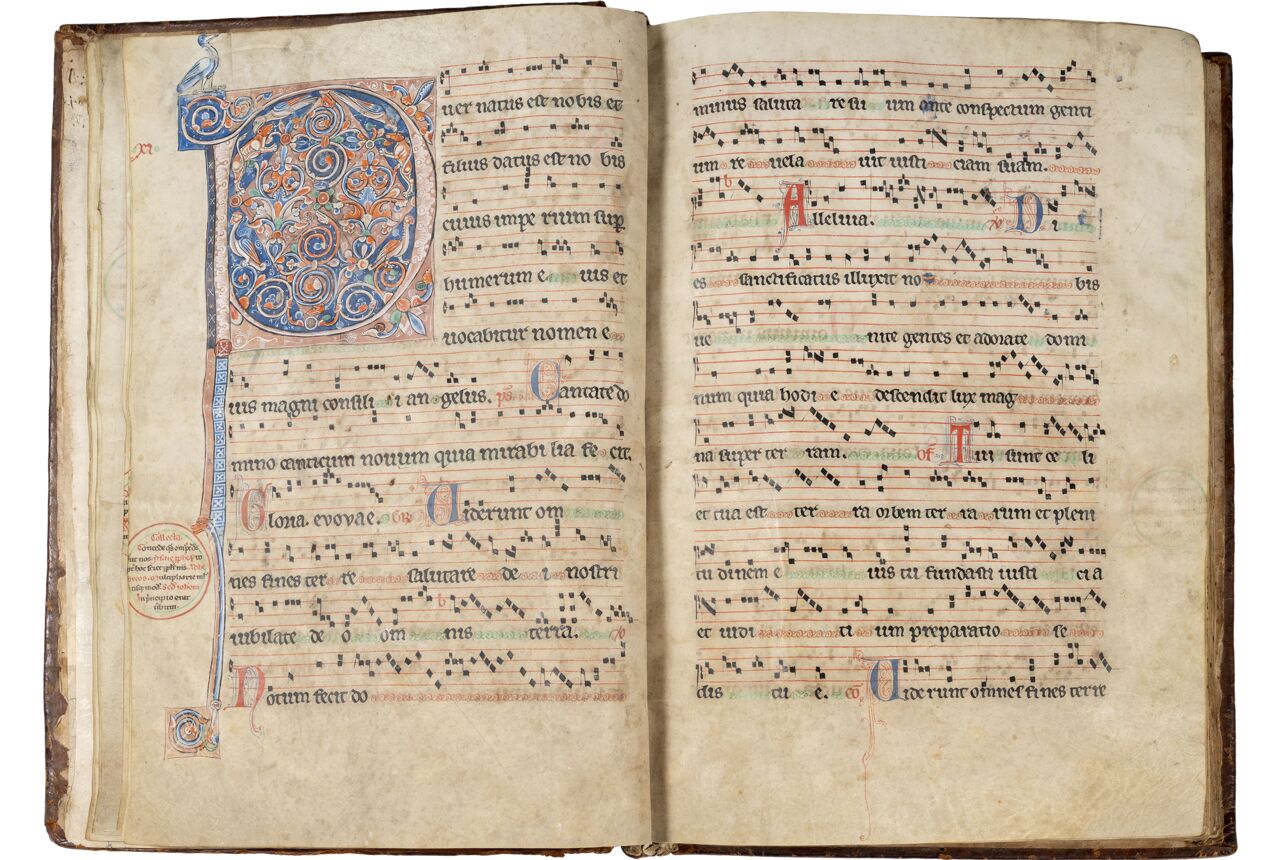 xi
Puer natus est nobis et
filius datus est no bis
cuius impe rium sup
humerum e ius et
vocabitur nomen e
ius magni consili i an gelus. ps Cantate do
mino canticum novum quia mirabi lia fe cit.
Gloria. evovae. GR Viderunt om
nes fines ter re salutare de i nostri
iubilate de o om nis terra. V
Notum fecit do
Collecta
Concede
minus saluta re su um ante conspectum genti
um re vela vit iusti ciam suam.
Alleluia. V Di
es sanctificatus illuxit no bis
ve nite gentes et adorate domi
num quia hodi e descendit lux mag
na super ter ram. of Tui sunt ce li
et tua est ter ra orbem ter ra rum et pleni
tu dinem e ius tu fundasti iusti ci a
et iudi ti um preparatio se
dis tu e. co Viderunt omnes fines terre